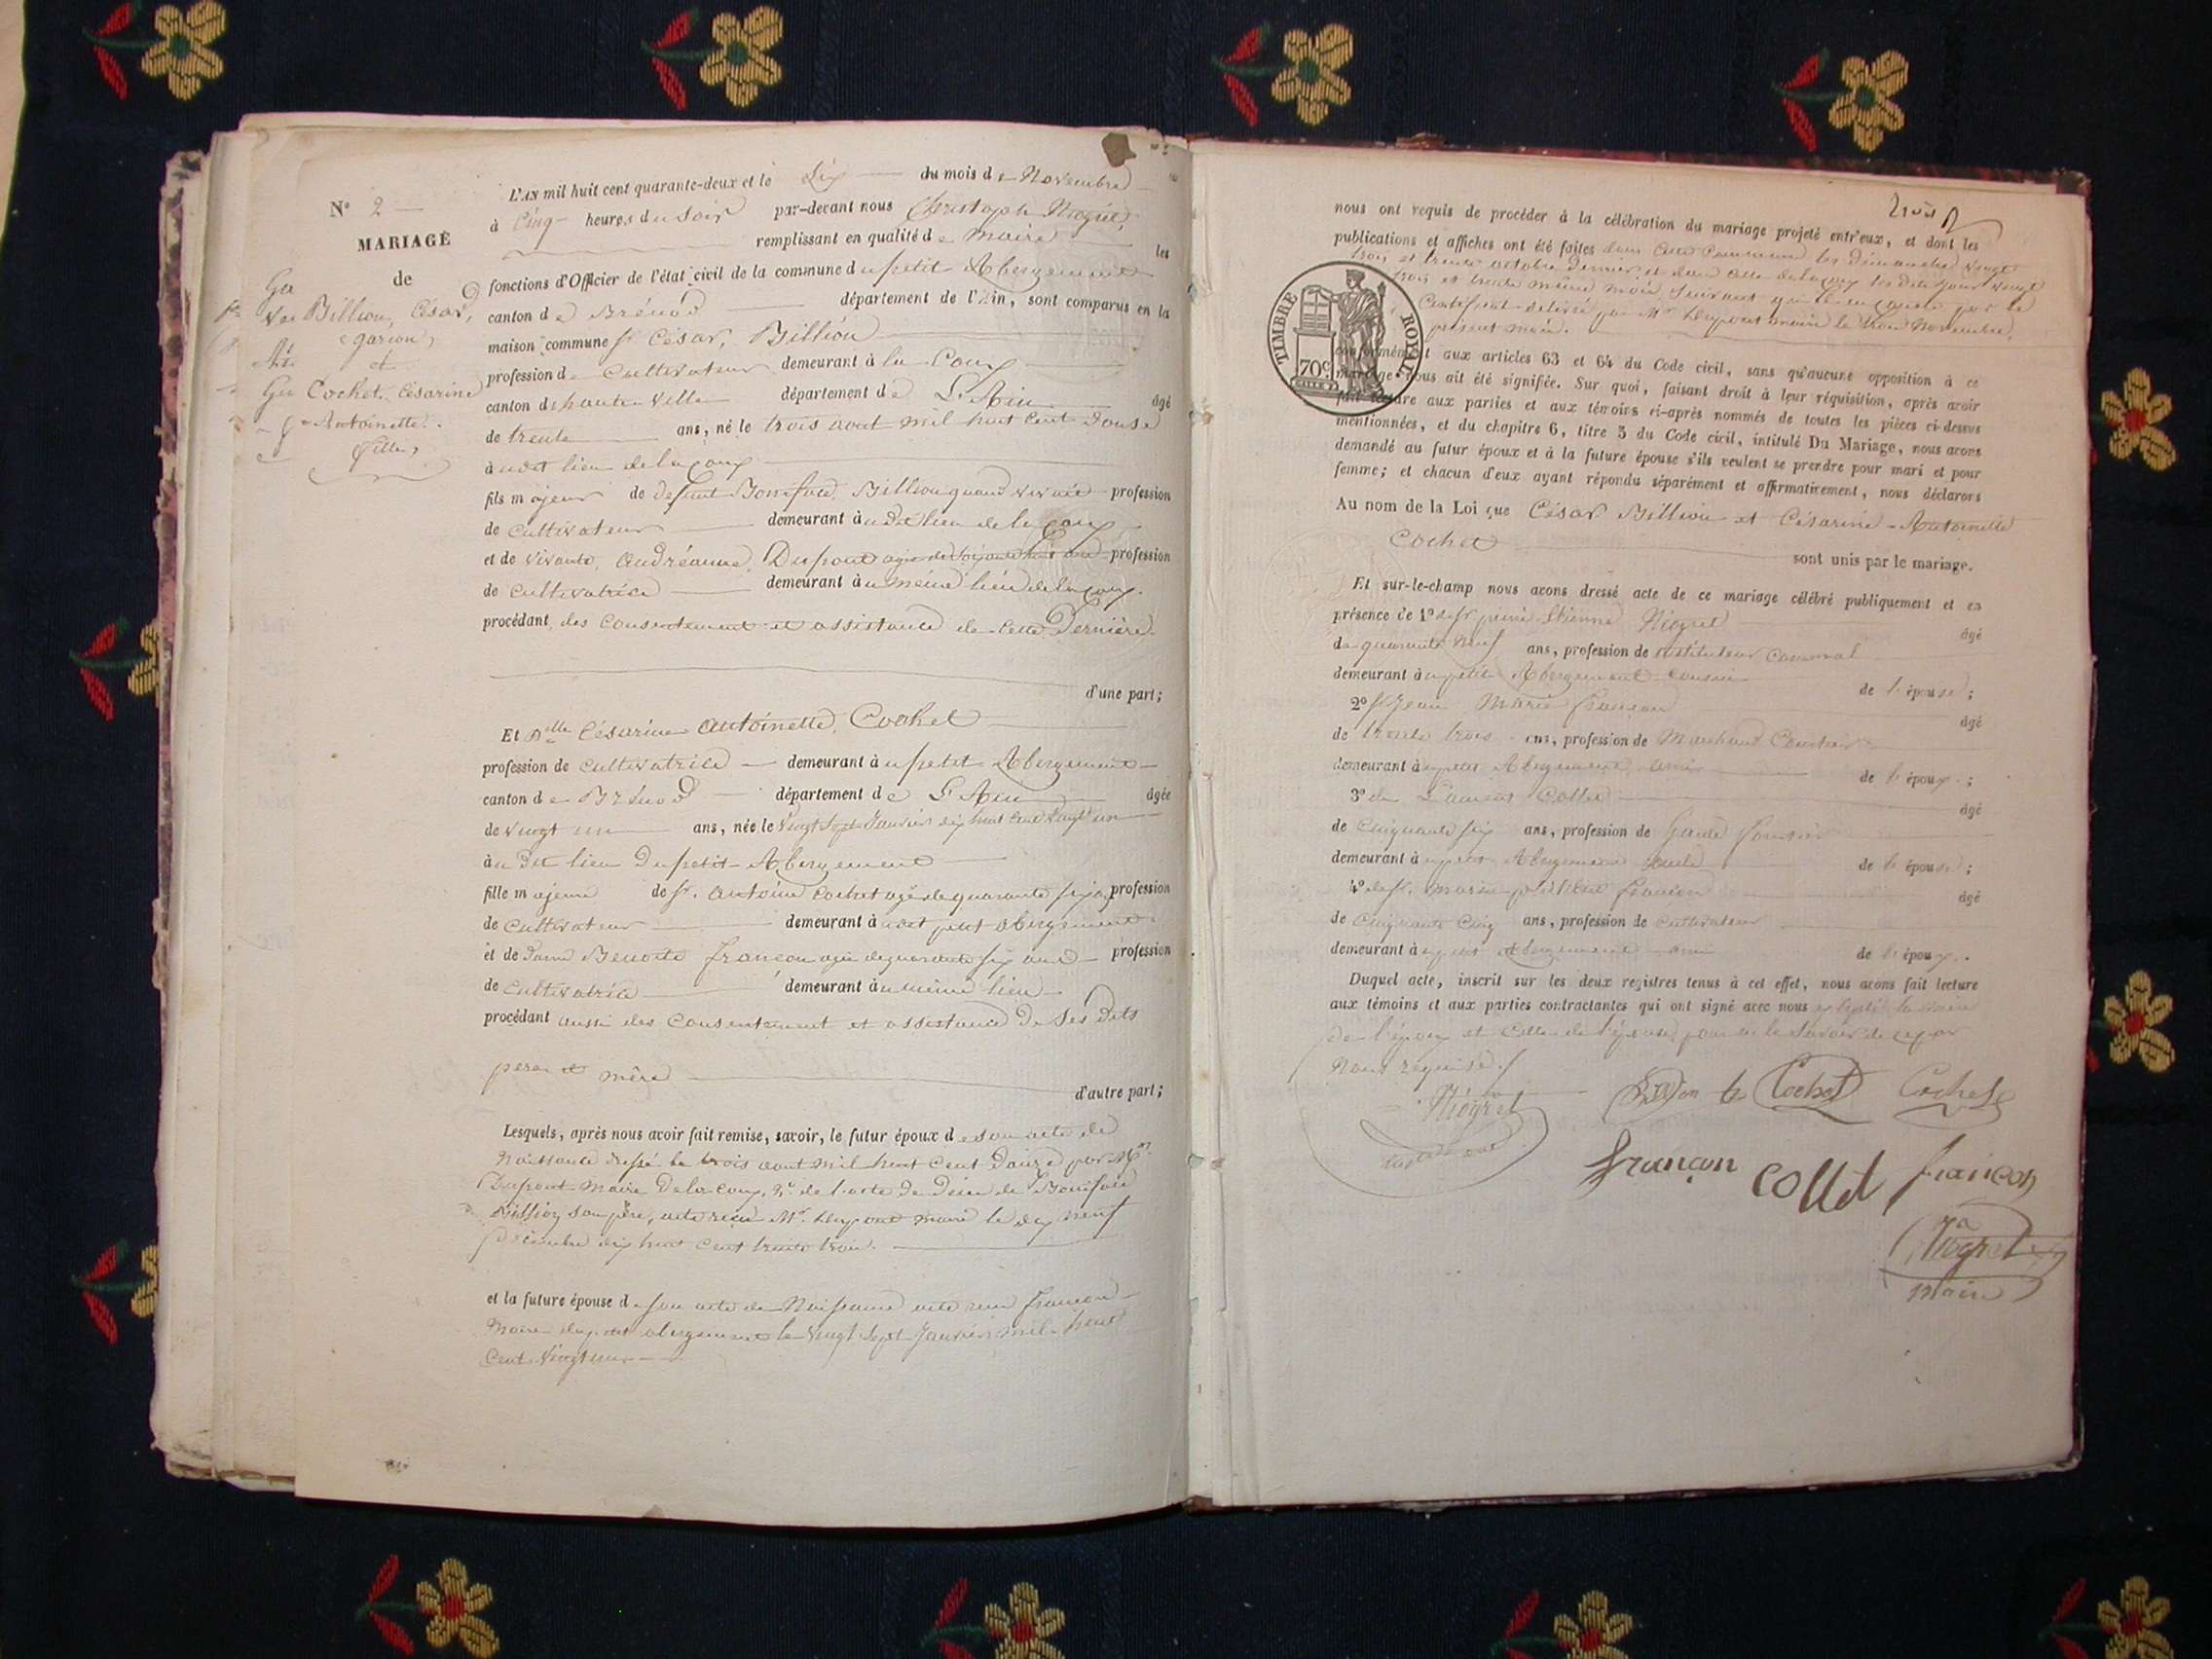 N° 2
MARIAGE
de
Billion, César,
garçon,
et
Cochet, Césarine
Antoinette.
fille,
L'AN mil huit cent quarante-deux et le dix du mois de Novembre
à Cinq heures du Soir par-devant nous Christophe Niogret,
remplissant en qualité de maire les
fonctions d'Officier de l'état civil de la commune du petit Abergement
canton de Brénod département de l'Ain, sont comparus en la
maison commune Sr César, Billion
profession de Cultivateur demeurant à la Coux
canton d'hauteville département de L'Ain âgé
de trente ans, né le trois aout mil huit cent douse
à udit lieu de lacoux
fils majeur de defunt Boniface Billion quand vivait profession
de Cultivateur demeurant à udit lieu de lacoux
et de vivante, Andréanne, Dupont agée de soixante ans profession
de cultivatrice demeurant à u même lieu de lacoux.
procédant des consentement et assistance de cette Dernière.
d'une part;
Et Delle Césarine Antoinette, Cochet
profession de cultivatrice demeurant à u petit Abergement
canton de Brénod département de L'Ain âgée
de vingt un ans, née le Vingt Sept Janvier dix huit cent vingt un
à u dit lieu Du petit Abergement
fille majeure de Sr. Antoine Cochet agé de quarante six ans profession
de cultivateur demeurant à udit petit abergement
et de Dame Benoite françon agée de quarante six ans profession
de cultivatrice demeurant à u même lieu
procédant aussi des consentement et assistance De Ses Dits
pere et mère
d'autre part;
Lesquels, après nous avoir fait remise, savoir, le futur époux de son acte de
Naissance dressé le trois aout mil huit cent Douze par Mr.
Dupont Maire De lacoux, 2° de l'acte De Décès de Boniface
Billion son père, acte reçu Mr. Dupont maire le dix neuf
Décembre dix huit cent trente trois.
et la future épouse de son acte de Naissance acte reçu françon
Maire du petit abergement le vingt Sept Janvier mil huit
Cent Vingt un
trois
nous ont requis de procéder à la célébration du mariage projeté entr'eux, et dont les
publications et affiches ont été faites dans cette Commune les dimanches vingt
trois et trente octobre Dernier, et dans celle de lacoux les dits jours vingt
trois et trente même mois, suivant qu'il en conste par le
Certificat délivré par Mr. Dupont maire le trois Novembre,
présent mois.
TIMBRE ROYAL
70c.
conformément aux articles 63 et 64 du Code civil, sans qu'aucune opposition à ce
mariage nous ait été signifiée. Sur quoi, faisant droit à leur réquisition, après avoir
fait lecture aux parties et aux témoins ci-après nommés de toutes les pièces ci-dessus
mentionnées, et du chapitre 6, titre 5 du Code civil, intitulé Du Mariage, nous avons
demandé au futur époux et à la future épouse s'ils veulent se prendre pour mari et pour
femme; et chacun d'eux ayant répondu séparément et affirmativement, nous déclarons
Au nom de la Loi que César Billion et Césarine Antoinette
Cochet
sont unis par le mariage.
Et sur-le-champ nous avons dressé acte de ce mariage célébré publiquement et en
présence de 1° Etienne Niogret âgé
de quarante neuf ans, profession de instituteur Communal
demeurant à u petit Abergement cousin de l'épouse;
2° Sr Jean Marie françon âgé
de trente trois ans, profession de Marchand
demeurant à u petit Abergement ami de l'époux;
3° Collet âgé
de cinquante six ans, profession de Garde forestier
demeurant à u petit Abergement oncle de l'épouse;
4° de Sr. françon âgé
de cinquante cinq ans, profession de cultivateur
demeurant à u petit Abergement ami de l'époux.
Duquel acte, inscrit sur les deux registres tenus à cet effet, nous avons fait lecture
aux témoins et aux parties contractantes qui ont signé avec nous excepté la mère
de l'époux et celle de l'épouse, pour ne le savoir de ce par
nous requise.
Niogret Billion Cochet Cochet
françon Collet françon
Niogret
Maire